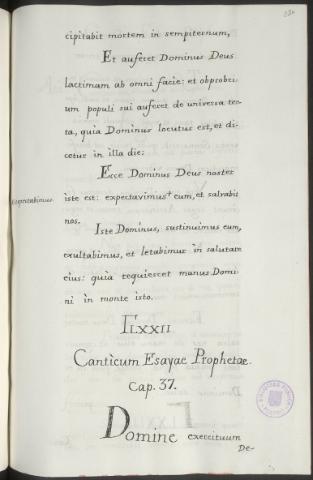 cipitabit mortem in sempiternum,
Et auferet Dominus Deus
lacrimam ab omni facie: et obprobri-
um populi sui auferet de universa ter-
ra, quia Dominus locutus est, et di-
cetur in illa die:
Ecce Dominus Deus noster
iste est: expectavimus+ eum, et salvabit
nos.
Iste Dominus, sustinuimus eum,
exultabimus, et letabimur in salutare
eius: quia requiescet manus Domi-
ni in monte isto.
LXXII
Canticum Esayae Prophetae.
Cap. 37.
Domine exercituum
De-